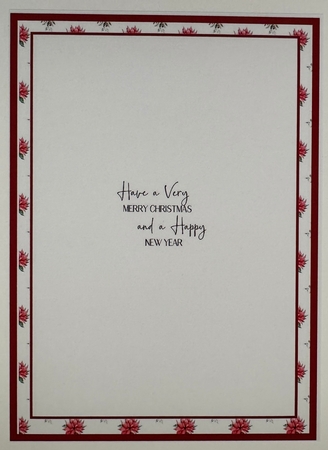 Have a Very
MERRY CHRISTMAS
and a Happy
NEW YEAR